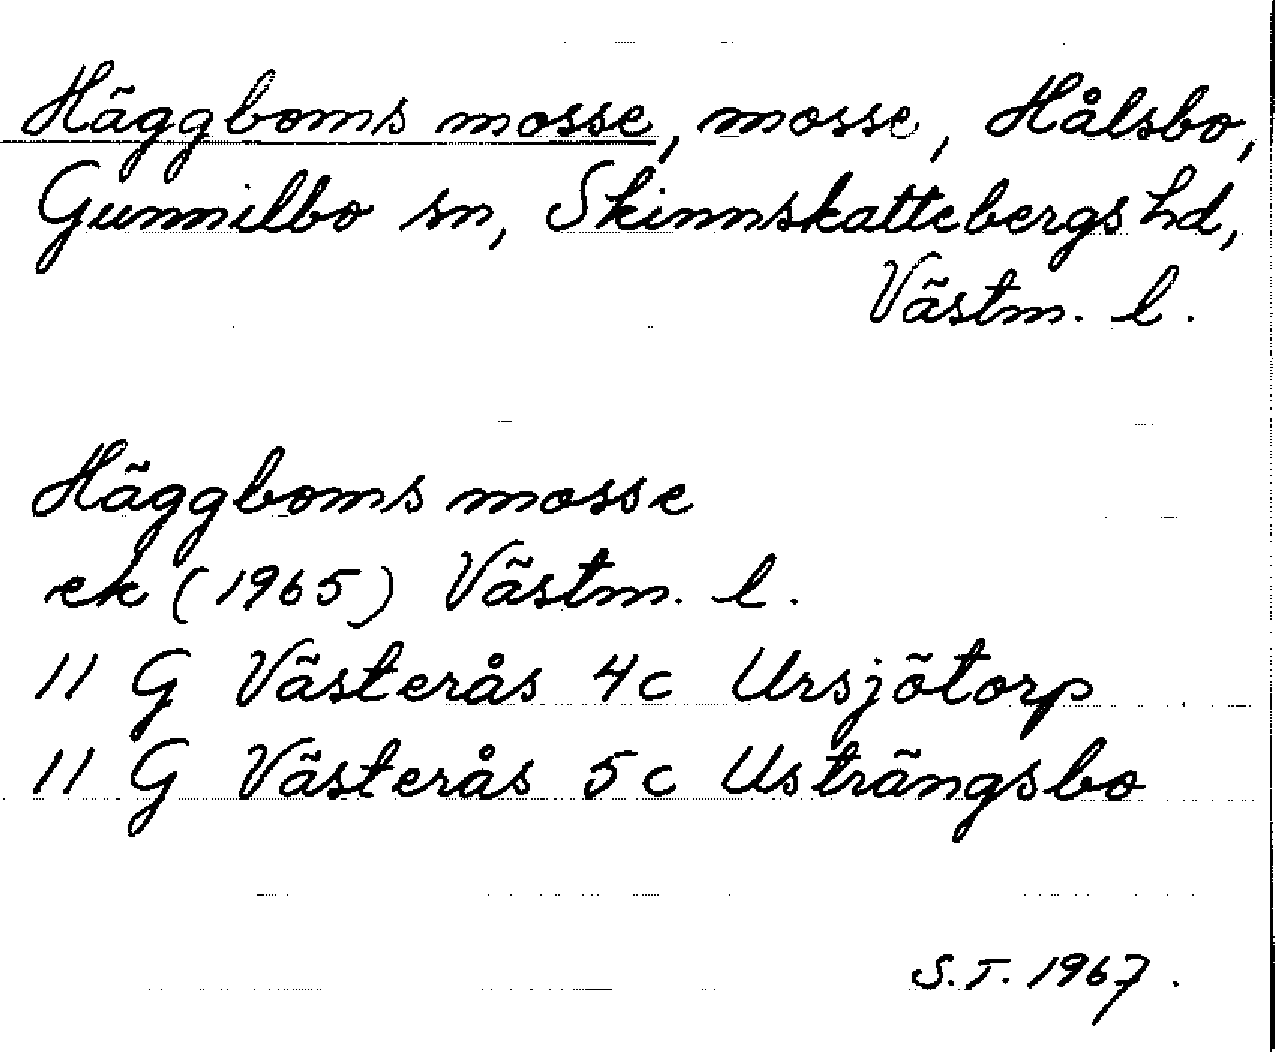 Häggboms mosse, mosse, Hålsbo,
Gunnilbo sn, Skinnskattebergs hd,
Västm. l.
Häggboms mosse
ek (1965) Västm. l.
11 G Västerås 4c Ursjötorp
11 G Västerås 5c Usträngsbo
S.T. 1967.